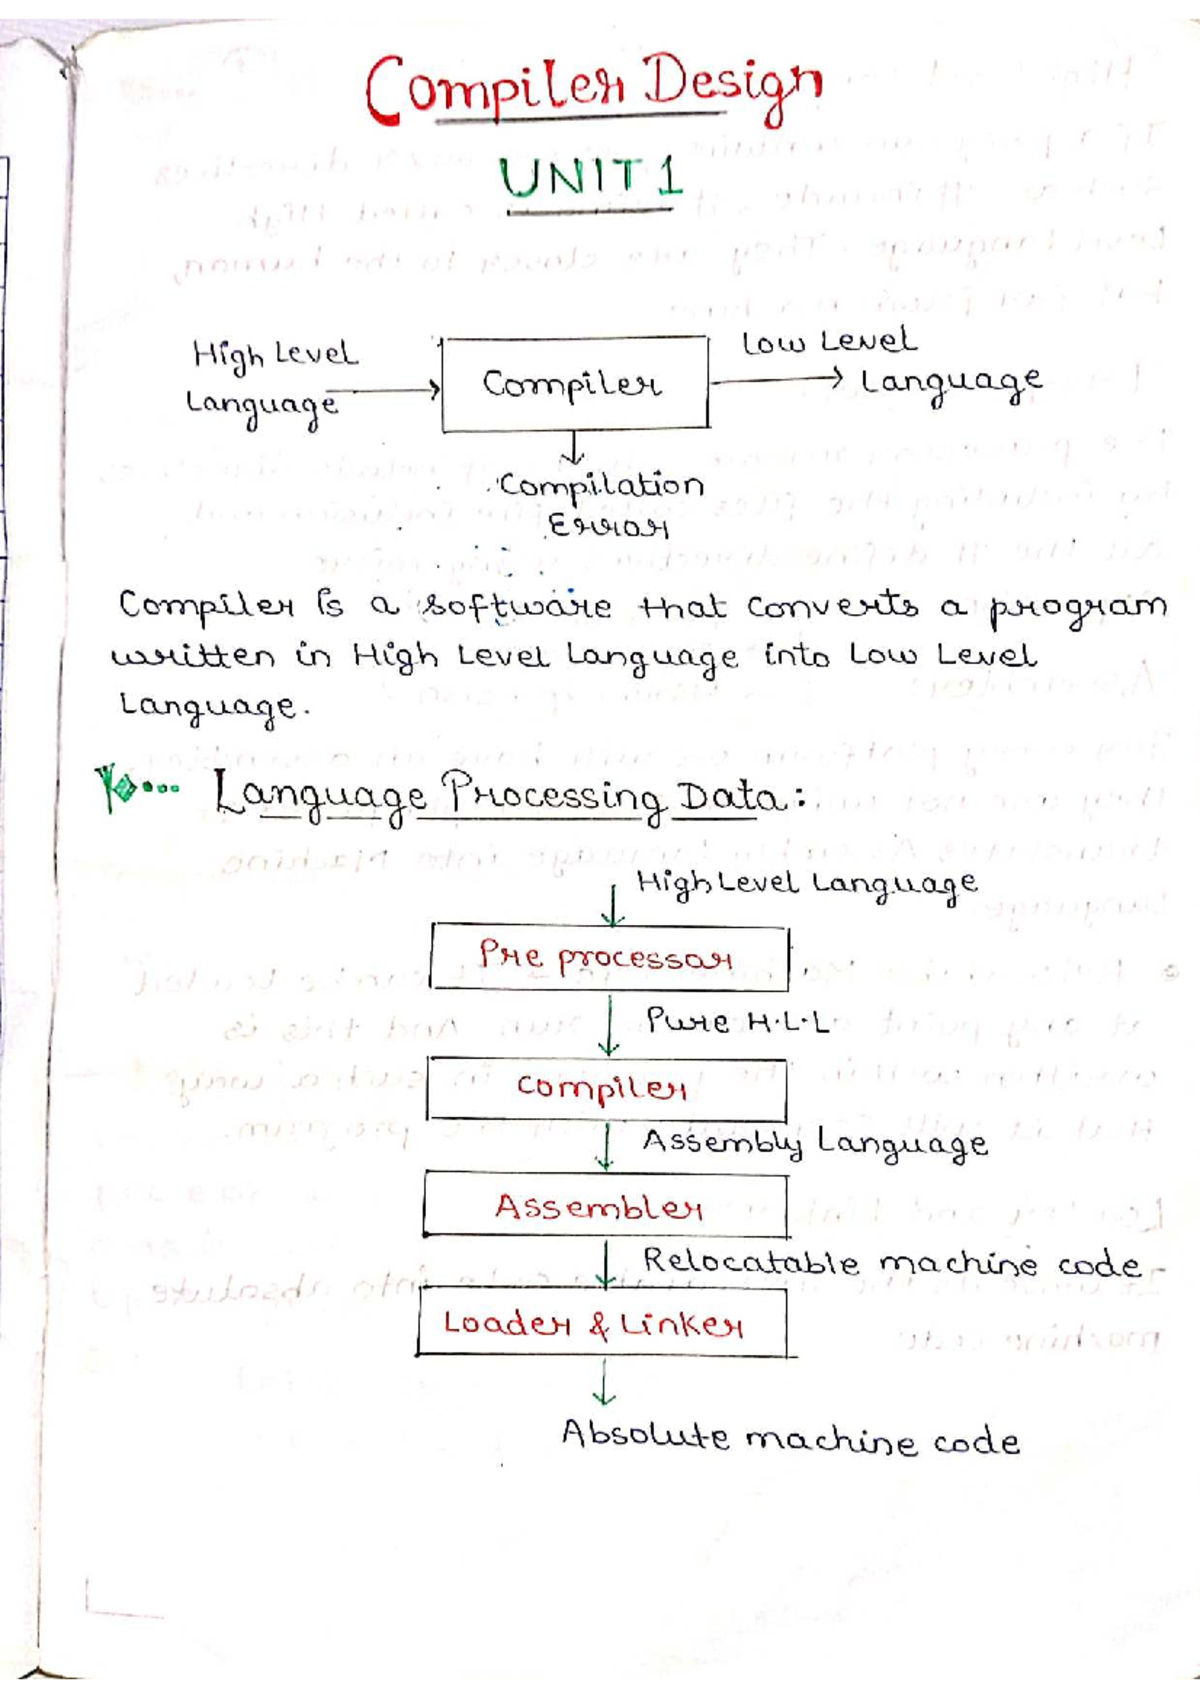 Compiler Design
UNIT 1
High Level
Language
Compiler
Low Level
Language
Compilation
Error
Compiler is a software that converts a program
written in High Level Language into Low Level
Language.
Language Processing Data:
High Level Language
Pre processor
Pure H.L.L
Compiler
Assembly Language
Assembler
Relocatable machine code
Loader & Linker
Absolute machine code